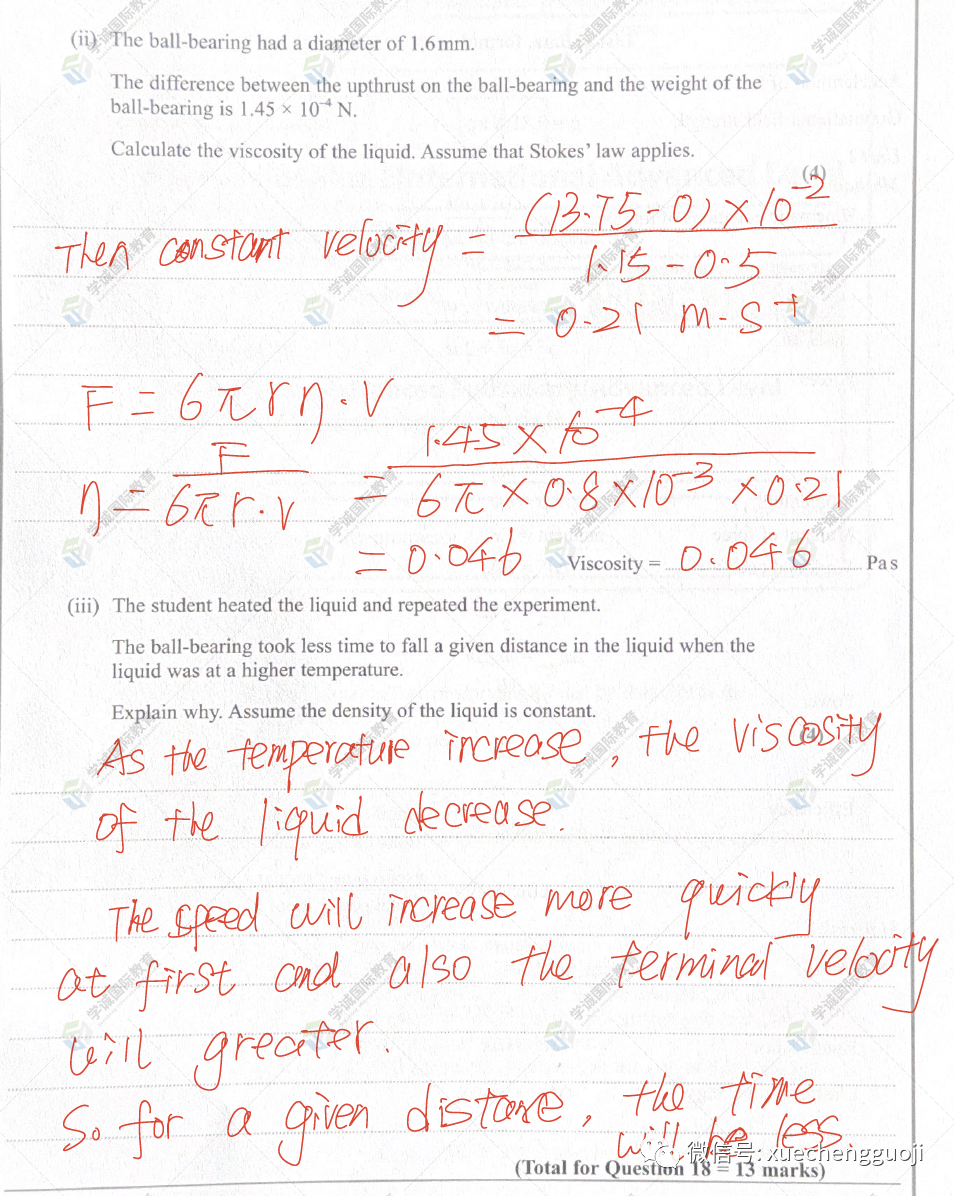 (ii) The ball-bearing had a diameter of 1.6 mm.
The difference between the upthrust on the ball-bearing and the weight of the
ball-bearing is 1.45 × 10⁻⁴ N.
Calculate the viscosity of the liquid. Assume that Stokes' law applies.
(4)
Then constant velocity = (13.75 - 0) × 10⁻² / 1.15 - 0.5
= 0.21 m·s⁻¹
F = 6πrη·v
η = F / 6πr·v = 1.45 × 10⁻⁴ / 6π × 0.8 × 10⁻³ × 0.21
= 0.046 Viscosity = 0.046 Pa s
(iii) The student heated the liquid and repeated the experiment.
The ball-bearing took less time to fall a given distance in the liquid when the
liquid was at a higher temperature.
Explain why. Assume the density of the liquid is constant.
As the temperature increase, the viscosity
of the liquid decrease.
The speed will increase more quickly
at first and also the terminal velocity
will greater.
So for a given distance, the time
will be less.
微信号: xuechengguoji
(Total for Question 18 = 13 marks)
学诚国际教育